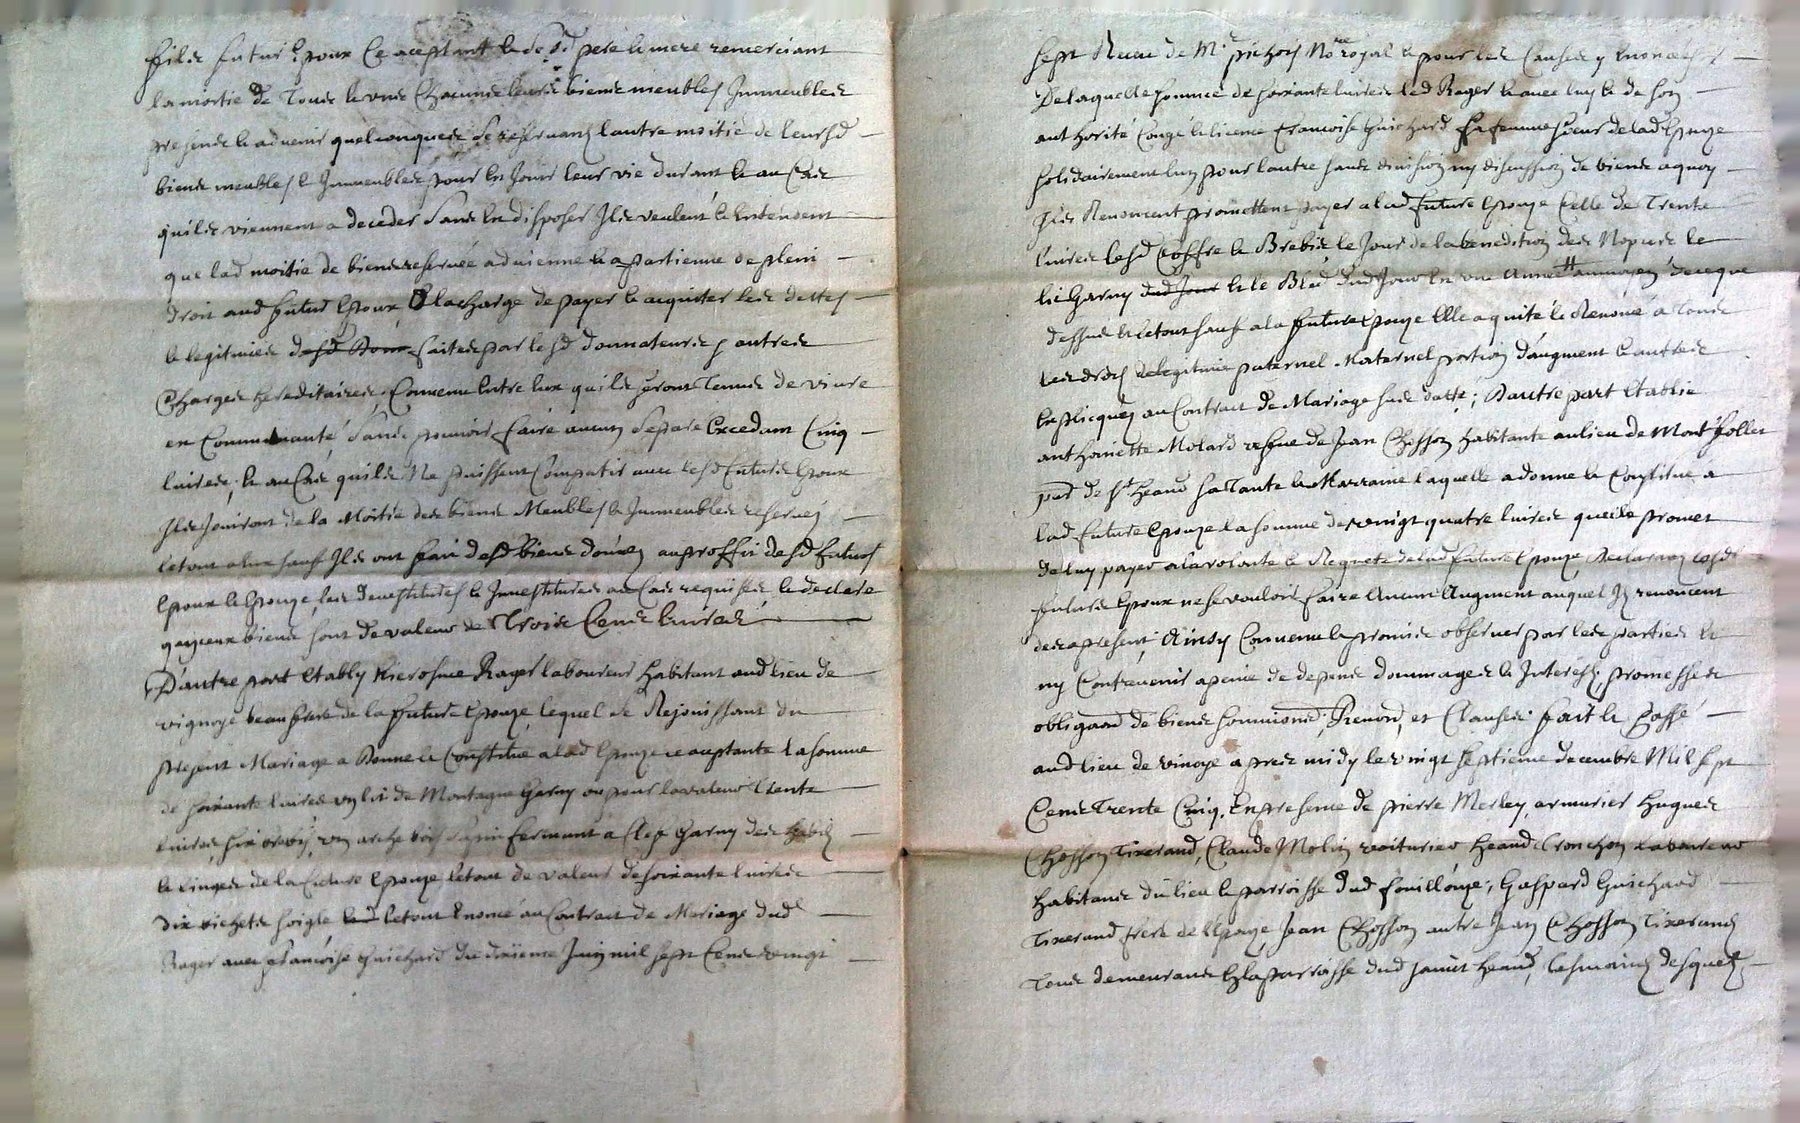 fils futur Epoux Ce aceptant de sd pere et mere remerciant
la moitie de Tous et uns Chacuns leurs biens meubles Jmmeubles
presens et advenir quelconques se reservans lautre moitié de leursd
biens meubles et Jmmeubles pour en Jouir leur vie durant et au Cas
quils viennent a deceder Sans en disposer Jls veulent et Entendent
que lad moitié de biens reservée advienne et apartienne de plein
droit aud futur Epoux a la charge de payer et acquiter les dettes
et legitimes faites par lesd donnateurs autres
Charges hereditaires, Convenu Entre eux quils seront Tenus de vivre
en Communauté Sans pouvoir faire aucun Excedant Cinq
livres, et au Cas quils Ne puissent Compatir avec lesd futurs Epoux
Jls Jouiront de la Moitié des biens Meubles et Jmmeubles reservés
letout sauf Jls ont fait desd biens au proffit desd futurs
Epoux et Epouze, les et au Cas requises et declare
yceux biens sont de valeur de Trois Cens livres
D'autre part Etably hierosme Rager laboureur habitant aud lieu de
vignoye beaufrere de la future Epouze, lequel se Rejouissant du
present Mariage a Donne et Constitue a lad Epouze aceptante la somme
de soixante livres un lit de Montagne Garny ou pour la valeur Trente
livres, six brebis, un arche bois sapin fermant a Clef Garny des habis
et linges de la future Epouze letout de valeur de soixante livres
dix bichets soigle letout Enoncé au Contrat de Mariage dud
Rager avec francoise Guichard du dixieme Juin mil sept Cens vingt
sept Receu de Mr pichon Nore royal et pour les Causes y Enoncées
De laquelle somme de soixante livres led Rager et avec luy et de son
authorité Congé et licence francoise Guichard sa femme soeur de lad Epouze
solidairement lun pour lautre sans division ny discussion de biens a quoy
Jls Renoncent promettent payer a lad future Epouze Celle de Trente
livres lesd Coffre et Brebis le Jour de la benediction des Nopces le
lit Garny et le Bled dud Jour En une Année moyen de ce que
dessus et letout sauf a la future Epouze Elle a quité et Renoncé a Tous
ses droits et legitime paternel Maternel portion d'augment et autres
Expliqués au Contrat de Mariage sus datté; D'autre part Etablie
anthoinette Molard vefve de Jean Chosson habitante au lieu de
parr de st heand sa Tante et Marraine laquelle a donné et Constitué a
lad future Epouze la somme de vingt quatre livres quelle promet
de luy payer a la volonte et Requete de lad future Epouze, Declarans lesd
futurs Epoux ne se vouloir faire Aucun Augment auquel Jls renoncent
des a present, Ainsy Convenu et promis observer par les parties et
ny Contrevenir a peine de depens dommages et Interests, promesses
obligaon de biens soumions, Renons, et Clauses fait et Passé
aud lieu de vinoye apres midy le vingt septieme decembre Mil sept
Cens Trente Cinq, En presence de pierre Merley armurier hugues
Chosson Tixerand, Claude Molin voiturier heand Cronchon laboureur
habitans du lieu et parroisse dud fouillouze, Gaspard Guichard
Tixerand frere de lEpouze Jean Chosson autre Jean Chosson Tixerans
Tous demeurans En la parroisse dud saint heand, Tesmoins desquels